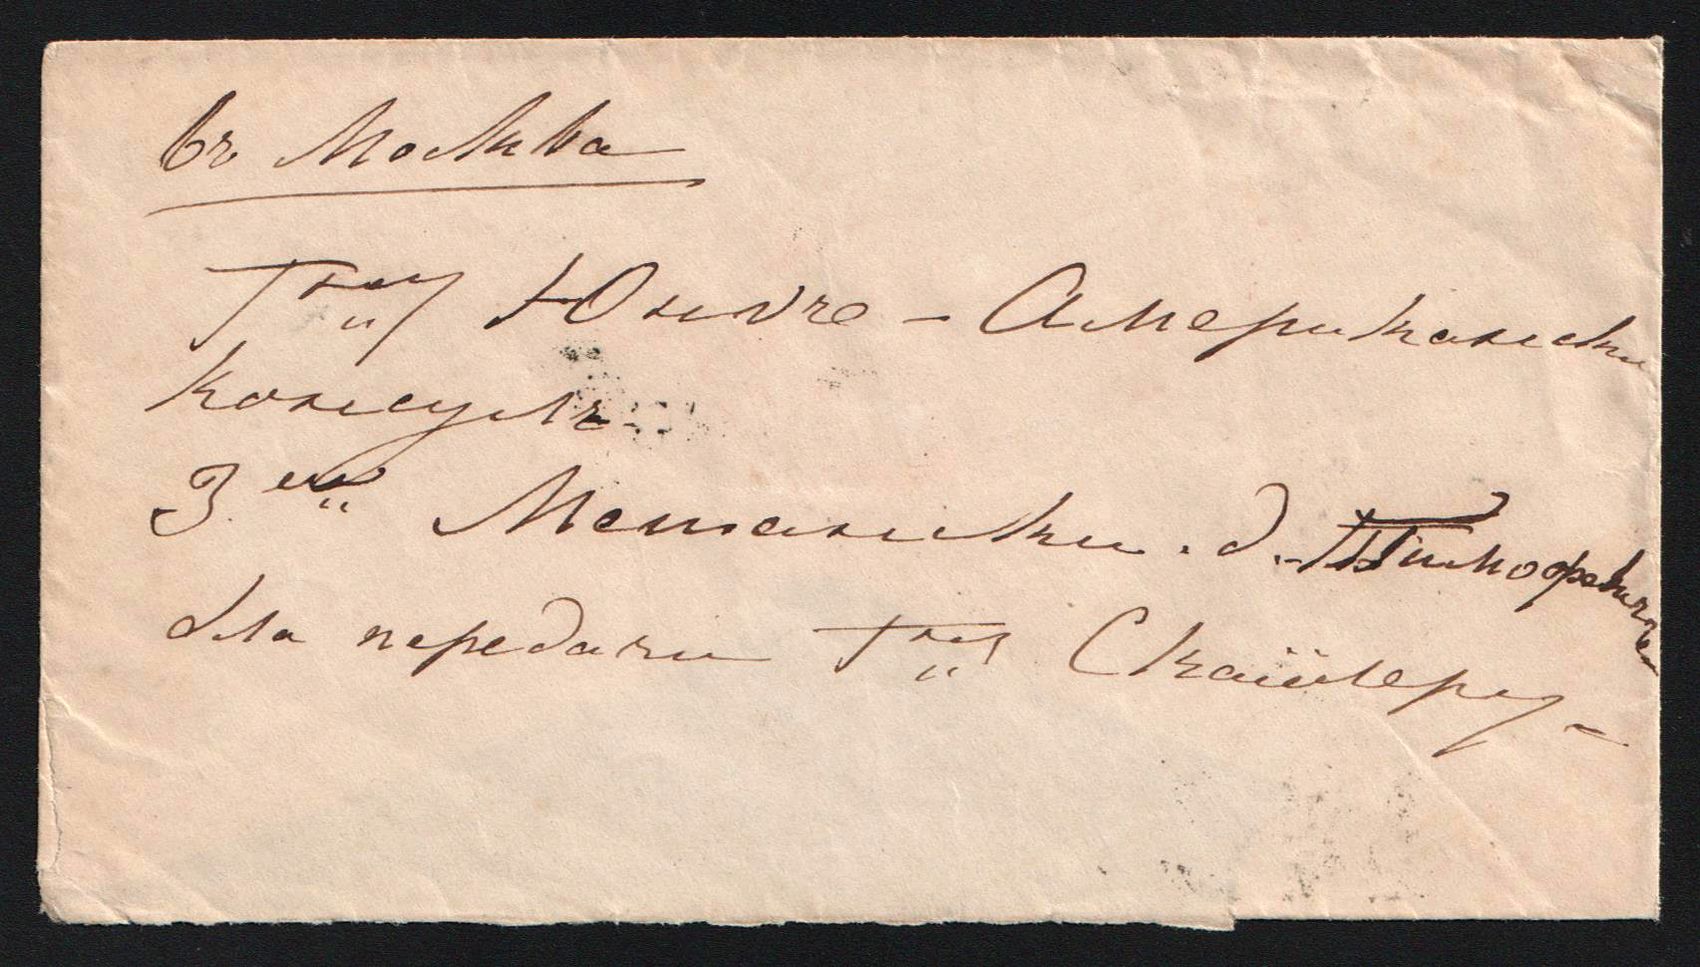 въ Москва
Г-ну Юните-Американски
Консулъ
3-ей Мещански. д. Тимофевиче
для передачи Г-ну Скайлеру